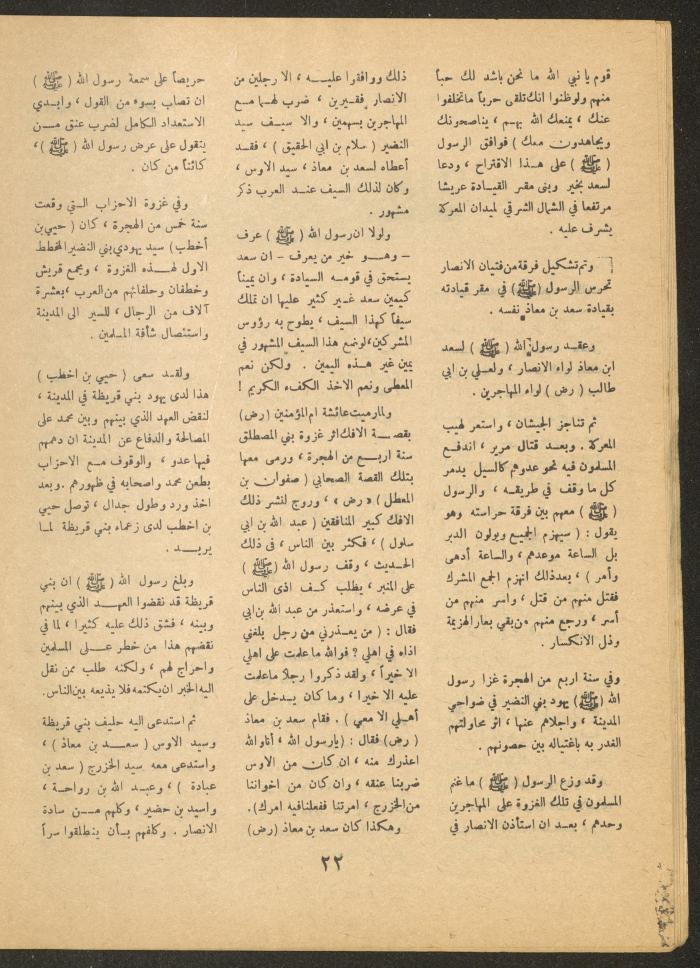 قوم يا نبي الله ما نحن باشد لك حباً
منهم ولو ظنوا انك تلقى حرباً ما تخلفوا
عنك ، يمنعك الله بهم ، يناصحونك
ويجاهدون معك ) فوافق الرسول
( ﷺ ) على هذا الاقتراح ، ودعا
لسعد بخير وبنى مقر القيادة عريشا
مرتفعا في الشمال الشرقي لميدان المعركة
يشرف عليه .
وتم تشكيل فرقة من فتيان الانصار
تحرس الرسول (ﷺ) في مقر قيادته
بقيادة سعد بن معاذ نفسه .
وعقد رسول الله ( ﷺ ) لسعد
ابن معاذ لواء الانصار ، ولعلي بن ابي
طالب ( رض ) لواء المهاجرين .
ثم تناجز الجيشان ، واستعر لهيب
المعركة . وبعد قتال مرير ، اندفع
المسلمون فيه نحو عدوهم كالسيل يدمر
كل ما وقف في طريقه ، والرسول
( ﷺ ) معهم بين فرقة حراسته وهو
يقول : ( سيهزم الجميع ويولون الدبر
بل الساعة موعدهم ، والساعة أدهى
وأمر ) ، بعد ذلك انهزم الجمع المشرك
فقتل منهم من قتل ، واسر منهم من
أسر ، ورجع منهم من بقي بعار الهزيمة
وذل الانكسار .
وفي سنة اربع من الهجرة غزا رسول
الله (ﷺ) يهود بني النضير في ضواحي
المدينة ، واجلاهم عنها ، اثر محاولتهم
الغدر به باغتياله بين حصونهم .
وقد وزع الرسول ( ﷺ ) ما غنم
المسلمون في تلك الغزوة على المهاجرين
وحدهم ، بعد ان استأذن الانصار في
ذلك ووافقوا عليه ، الا رجلين من
الانصار فقيرين ، ضرب لهما مع
المهاجرين بسهمين ، والا سيف سيد
النضير ( سلام بن ابي الحقيق ) ، فقد
أعطاه لسعد بن معاذ ، سيد الاوس ،
وكان لذلك السيف عند العرب ذكر
مشهور .
ولولا ان رسول الله ( ﷺ ) عرف
– وهو خير من يعرف – ان سعد
يستحق في قومه السيادة ، وان يميناً
كيمين سعد غير كثير عليها ان تملك
سيفاً كهذا السيف ، يطوح به رؤوس
المشركين ، لوضع هذا السيف المشهور في
يمين غير هذه اليمين . ولكن نعم
المعطى ونعم الاخذ الكفء الكريم !
ولما رميت عائشة ام المؤمنين (رض)
بقصة الافك اثر غزوة بني المصطلق
سنة اربع من الهجرة ، ورمى معها
بتلك القصة الصحابي ( صفوان بن
المعطل ) « رض » ، وروج لنشر ذلك
الافك كبير المنافقين ( عبد الله بن ابي
سلول ) ، فكثر بين الناس ، في ذلك
الحديث ، وقف رسول الله ( ﷺ )
على المنبر ، يطلب كف اذى الناس
في عرضه ، واستعذر من عبد الله بن ابي
فقال : ( من يعذرني من رجل بلغني
اذاه في اهلي ؟ فوالله ما علمت على اهلي
الا خيراً ، ولقد ذكروا رجلا ما علمت
عليه الا خيرا ، وما كان يدخل على
أهلي الا معي ) . فقام سعد بن معاذ
( رض ) فقال : ( يا رسول الله ، أنا والله
اعذرك منه ، ان كان من الاوس
ضربنا عنقه ، وان كان من اخواننا
من الخزرج ، امرتنا ففعلنا فيه امرك ) .
وهكذا كان سعد بن معاذ (رض)
حريصاً على سمعة رسول الله ( ﷺ )
ان تصاب بسوء من القول ، وابدى
الاستعداد الكامل لضرب عنق من
يتقول على عرض رسول الله ( ﷺ ) ،
كائناً من كان .
وفي غزوة الاحزاب التي وقعت
سنة خمس من الهجرة ، كان ( حيي بن
أخطب ) سيد يهودي بني النضير المخطط
الاول لهذه الغزوة ، ومجمع قريش
وخطفان وحلفائهم من العرب ، بعشرة
آلاف من الرجال ، للسير الى المدينة
واستئصال شأفة المسلمين .
ولقد سعى ( حيي بن اخطب )
هذا لدى يهود بني قريظة في المدينة ،
لنقض العهد الذي بينهم وبين محمد على
المصالحة والدفاع عن المدينة ان دهمهم
فيها عدو ، والوقوف مع الاحزاب
بطعن محمد واصحابه في ظهورهم . وبعد
اخذ ورد وطول جدال ، توصل حيي
بن اخطب لدى زعماء بني قريظة لما
يريد .
وبلغ رسول الله ( ﷺ ) ان بني
قريظة قد نقضوا العهد الذي بينهم
وبينه ، فشق ذلك عليه كثيرا ، لما في
نقضهم هذا من خطر على المسلمين
واحراج لهم ، ولكنه طلب ممن نقل
اليه الخبر ان يكتمه فلا يذيعه بين الناس .
ثم استدعى اليه حليف بني قريظة
وسيد الاوس ( سعد بن معاذ ) ،
واستدعى معه سيد الخزرج ( سعد بن
عبادة ) ، وعبد الله بن رواحة ،
واسيد بن حضير ، وكلهم من سادة
الانصار . وكلفهم بأن ينطلقوا سراً
٢٢